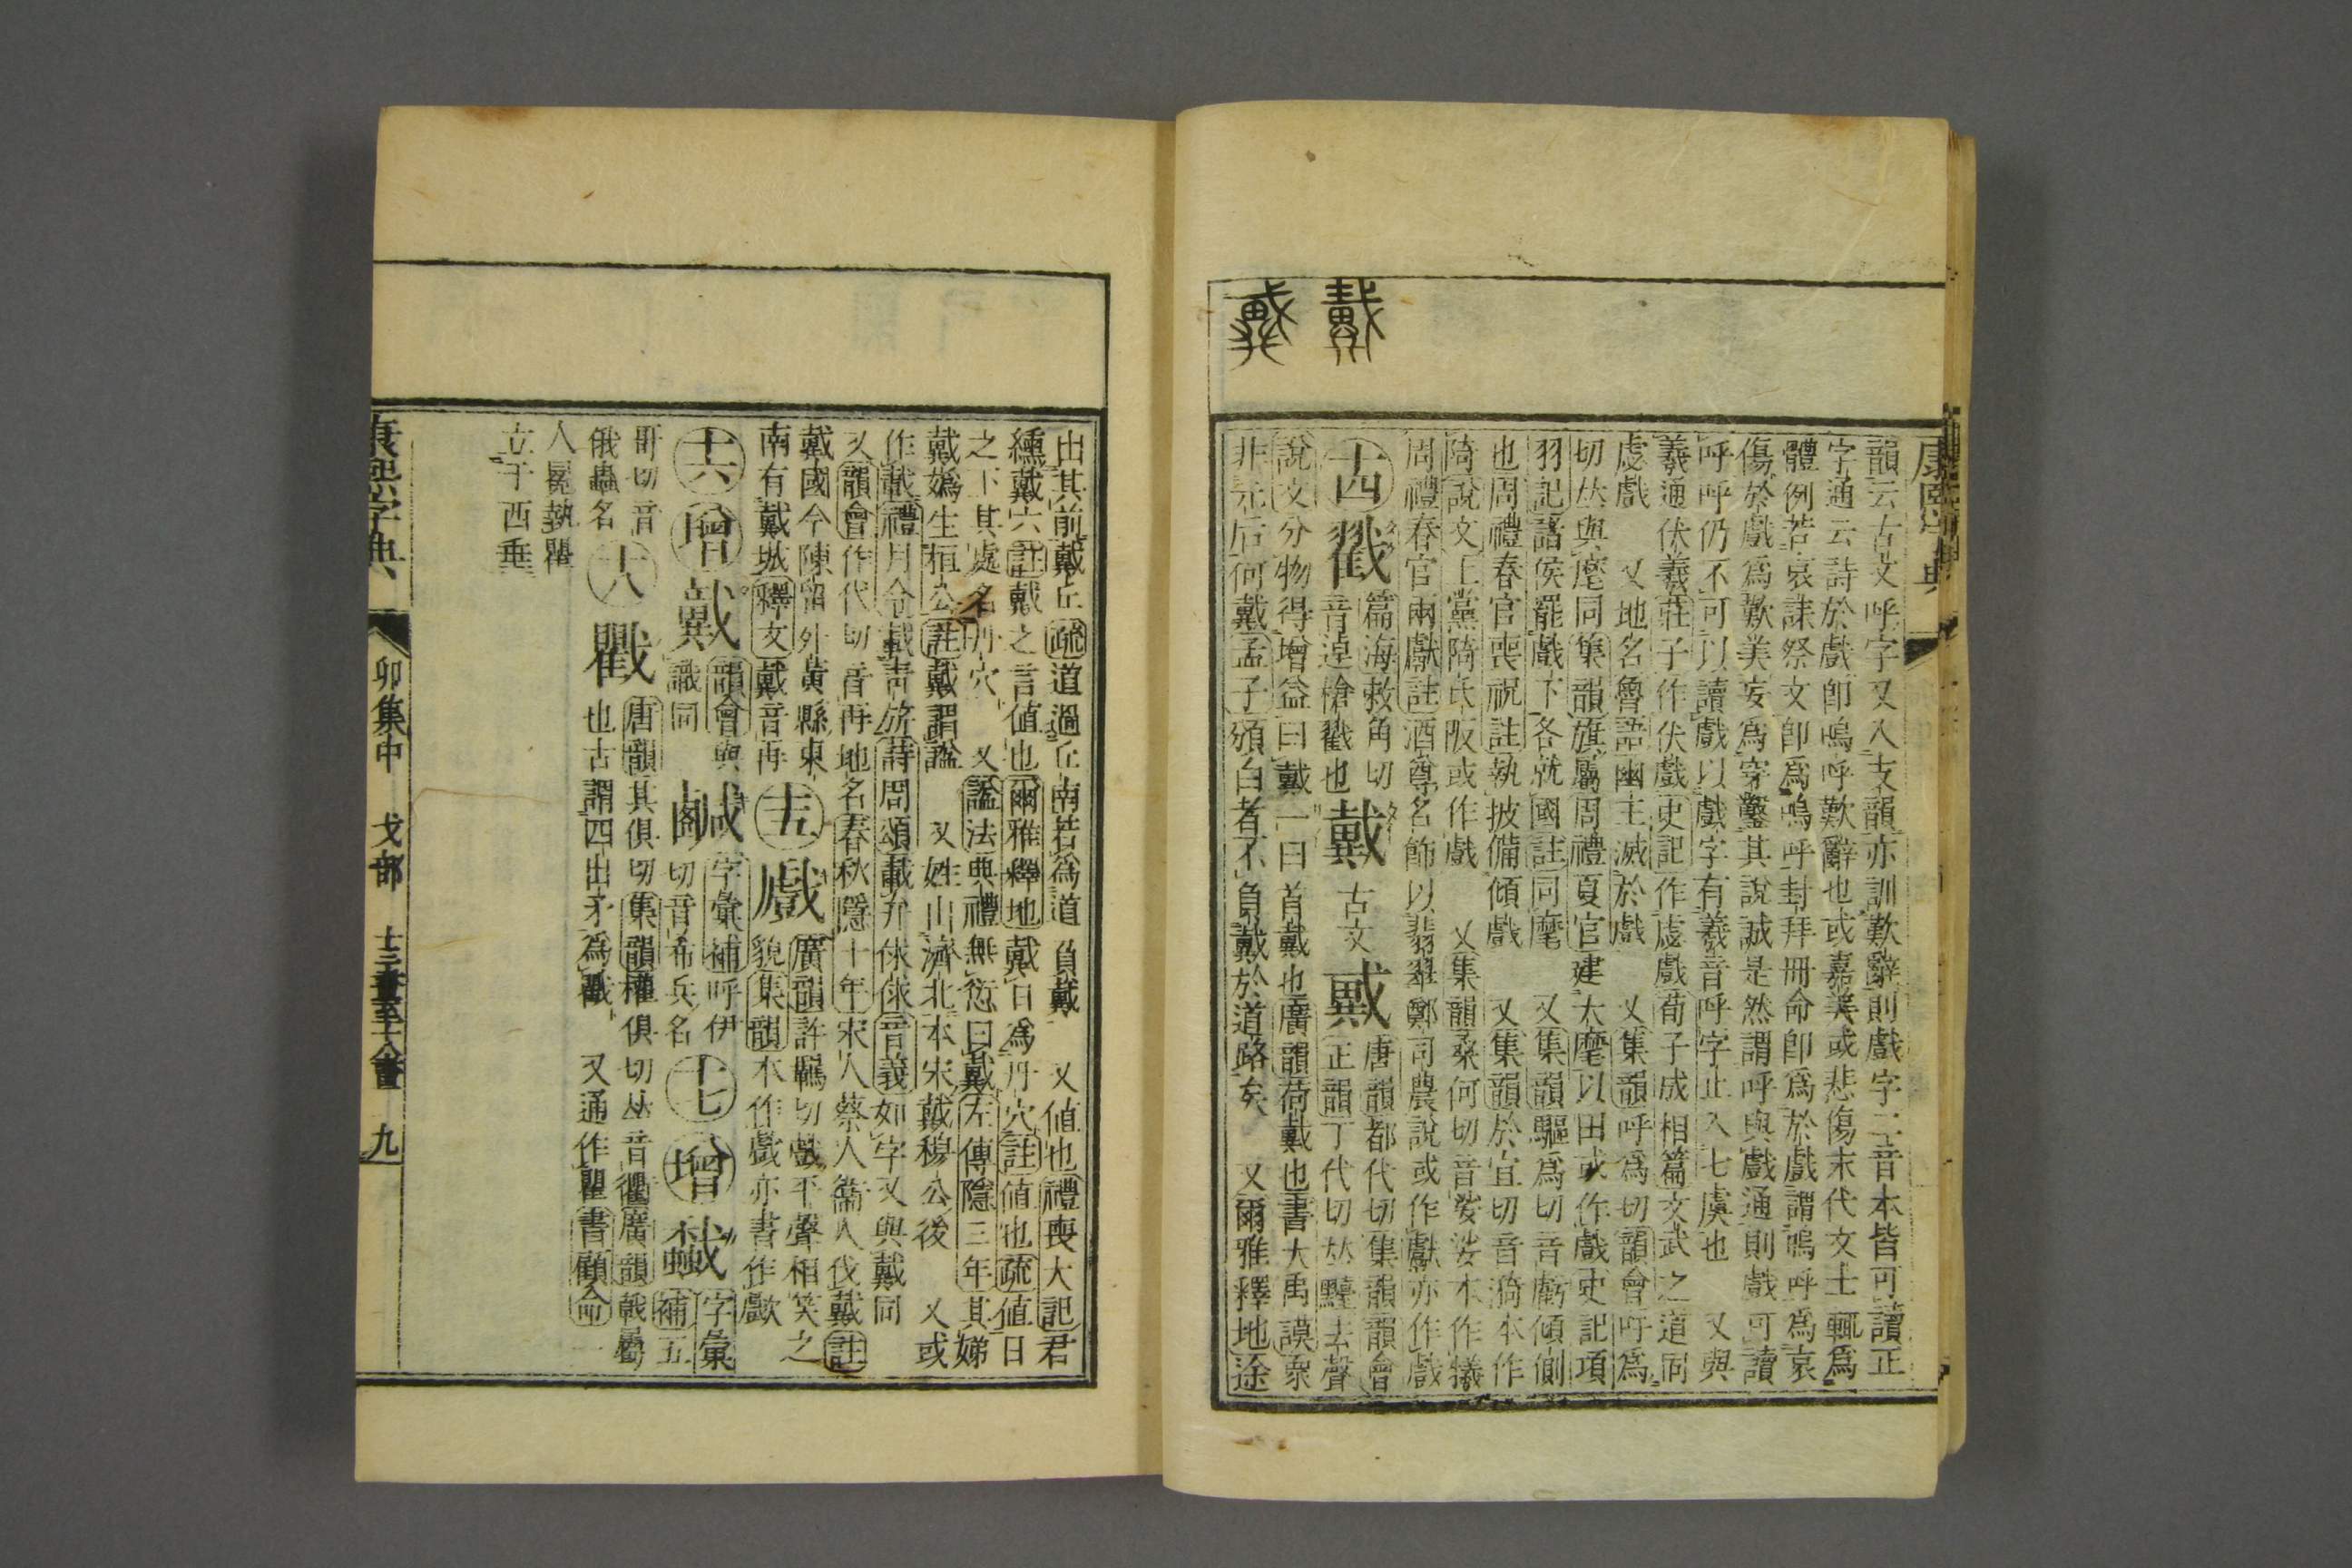 韻云古文呼字又入支韻亦訓歎辭則戲字二音本皆可讀正
字通云詩於戲卽嗚呼歎辭也或嘉美或悲傷末代文士輒爲
體例若哀誄祭文卽爲嗚呼封拜冊命卽爲於戲謂嗚呼爲哀
傷於戲爲歎美妄爲穿鑿其說誠是然謂呼與戲通則戲可讀
呼呼仍不可以讀戲以戲字有羲音呼字止入七虞也 又與
羲通伏羲莊子作伏戲史記作虙戲荀子成相篇文武之道同
虙戲 又地名魯語幽王滅於戲 又集韻呼爲切韻會吁爲
切𠀤與麾同集韻旗屬周禮夏官建大麾以田或作戲史記項
羽記諸侯罷戲下各就國註同麾 又集韻驅爲切音虧傾側
也周禮春官喪祝註執披備傾戲 又集韻於宜切音漪本作
陭說文上黨陭氏阪或作戲 又集韻桑何切音娑本作犧
周禮春官兩獻註酒尊名飾以翡翠鄭司農說或作獻亦作戲
十四 戳 篇海敕角切
音逴槍戳也 戴 古文 𢨇 唐韻都代切集韻韻會
正韻丁代切𠀤黱去聲
說文分物得增益曰戴一曰首戴也廣韻荷戴也書大禹謨衆
非元后何戴孟子頒白者不負戴於道路矣 又爾雅釋地途
出其前戴丘疏道過丘南若爲道負戴 又値也禮喪大記君
纁戴六註戴之言値也爾雅釋地戴日爲丹穴註値也疏値日
之下其處名丹穴 又諡法典禮無愆曰戴左傳隱三年其娣
戴嬀生桓公註戴謂諡 又姓出濟北本宋戴穆公後 又或
作載禮月令載靑旂詩周頌載弁俅俅音義如字又與戴同
又韻會作代切音再地名春秋隱十年宋人蔡人衞人伐戴註
戴國今陳留外黃縣東
南有戴城釋文戴音再 十五 戲 廣韻許羈切戲平聲相笑之
貌集韻本作戲亦書作歔
十六 增 戴 韻會與
識同 鹹 字彙補呼伊
切音希兵名 十七 增 字彙
補五
哥切音
俄蟲名 十八 戵 唐韻其俱切集韻權俱切𠀤音衢廣韻戟屬
也古謂四出矛爲戵 又通作瞿書顧命一
人冕執瞿
立于西垂
康熙字典
卯集中 戈部 十三畫至十八畫 九
康熙字典